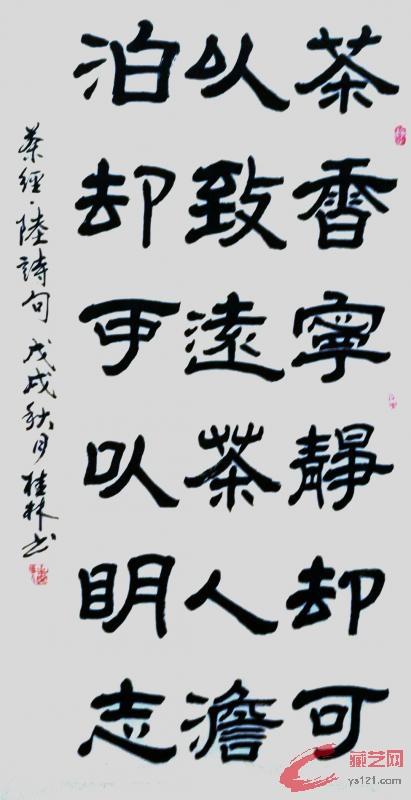 茶香寧靜却可
以致遠茶人澹
泊却可以明志
茶經·陸詩句 戊戌秋月桂林书
藏艺网
ys121.com